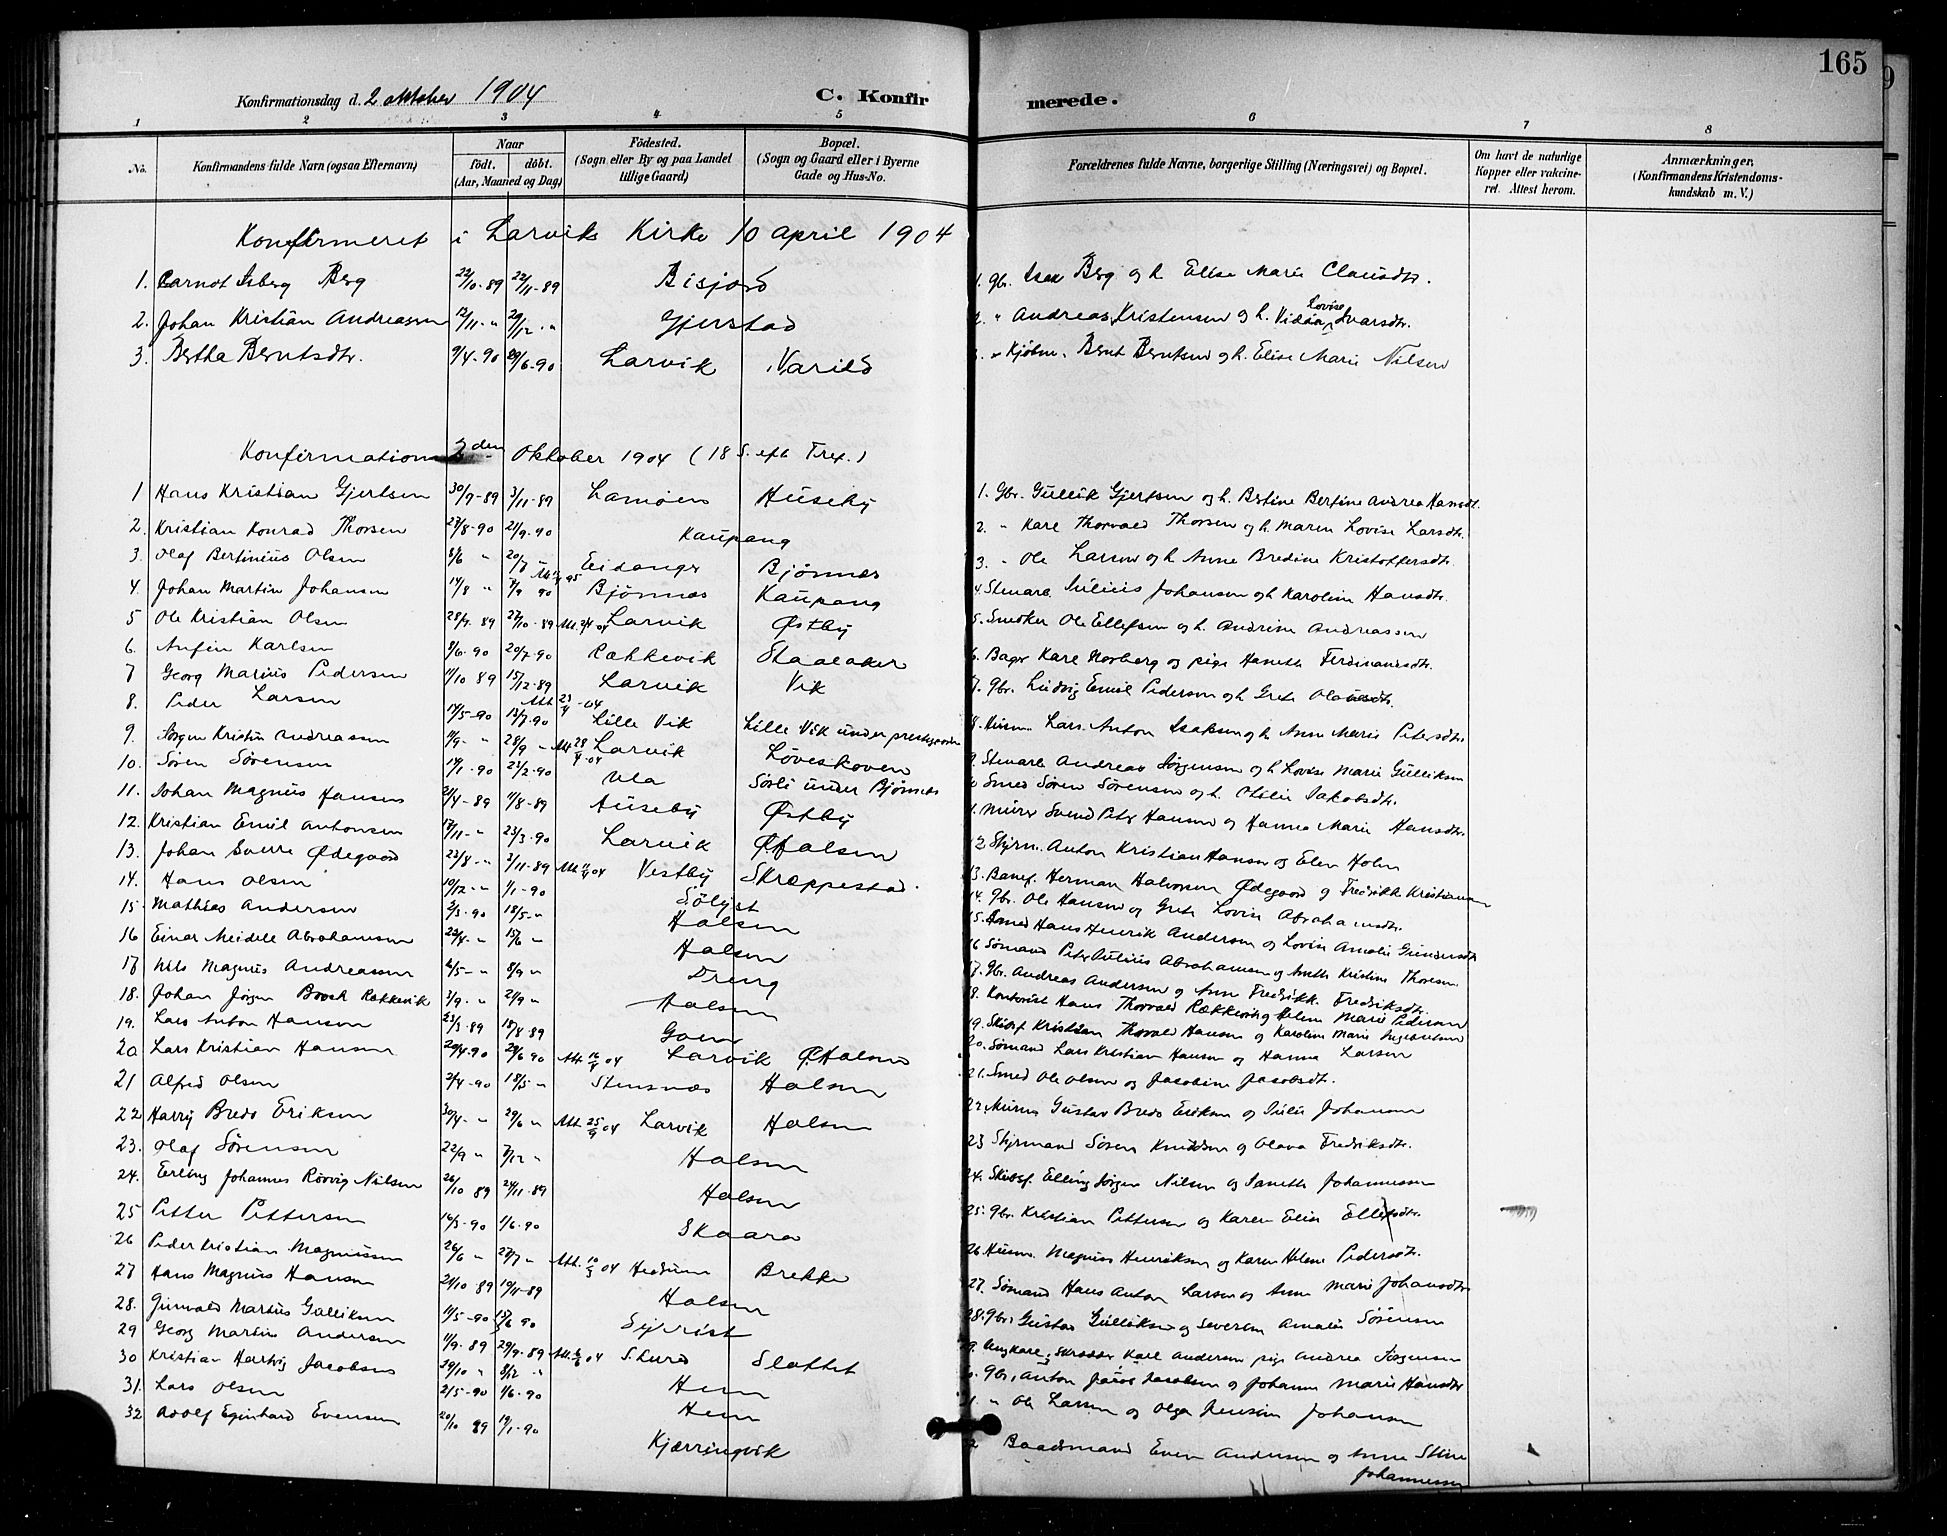 165
Konfirmationsdag d. 2 oktober 1904
C. Konfirmerede.
1 2 3 4 5 6 7 8
No. Konfirmandens fulde Navn (ogsaa Efternavn) Naar født. døbt. (Aar, Maaned og Dag) Fødested. (Sogn eller By og paa Landet tillige Gaard) Bopæl. (Sogn og Gaard eller i Byerne Gade og Hus-No. Forældrenes fulde Navne, borgerlige Stilling (Næringsvei) og Bopæl. Om havt de naturlige Kopper eller vakcineret. Attest herom. Anmærkninger. (Konfirmandens Kristendomskundskab m. V.)
Konfirmeret i Larviks Kirke 10 april 1904
1. Carnot Isberg Berg 22/10-89 22/11-89 Bisjord 1. Gbr. Isak Berg og h. Elise Marie Clausdtr.
2. Johan Kristian Andreassen 12/11-" 29/12-" Gjerstad 2. " Andreas Kristensen og h. Vidda Lovise Ivarsdtr.
3. Bertha Berntsdtr. 9/4-90 29/6-90 Larvik Varild " Kjøbm. Bernt Berntsen og h. Elise Marie Nilsen
Konfirmation 2den Oktober 1904 (18 S. eft Tref.)
1 Hans Kristian Gjertsen 30/9-89 3/11-89 Lamøen Huseby 1. Gbr. Gullik Gjertsen og h. Bertine Bertine Andrea Hansdt.
2. Kristian Konrad Thorsen 27/8-90 21/9-90 Kaupang 2. " Karl Thorvald Thorsen og h. Maren Lovise Larsdtr.
3. Olaf Bertinius Olsen 8/6 " 20/7 " Eidanger Bjønnes 3. " Ole Larsen og h. Anne Bredine Kristoffersdtr.
4. Johan Martin Johansen 14/8 " 7/9 90 Bjønnes Kaupang 4. Stenarb. Julius Johansen og h. Karoline Hansdtr.
5 Ole Kristian Olsen 28/9. 89 27/10-89 Larvik Østby 5. Snedker Ole Ellefsen og h. Andrine Andreassen
6. Anfin Karlsen 9/6-90 20/7-90 Rækkevik Skaalaker 6. Bager Karl Norberg og pige Hanette Ferdinansdtr.
7 Georg Marius Pedersen 11/10 89 15/12-89 Larvik Vik 7. Gbr. Ludvig Emil Pedersen og h. Grete Olausdtr.
8. Peder Larsen 14/5-90 13/7-90 Att 23/4-04 Lille Vik Lille Vik under prestegaarden 8. Husm. Lars Anton Isaksen og h. Anne Marie Petersdtr.
9. Jørgen Kristian Andreassen 11/9- " 28/9 - Att 28/4-04 Larvik Løveskoven 9. Stenarb. Andreas Jørgensen og h. Lovise Marie Gulliksen
10. Søren Sørensen 14/1-90 23/2-90 Ula Sørli under Bjønnes Smed Søren Sørensen og h. Otilie Jakobsdtr.
11. Johan Magnus Hansen 21/4-89 11/8-89 Huseby Østby Murer Svend Peter Hansen og Hanna Marie Hansdtr.
12. Kristian Emil Antonsen 17/11- " 23/3-90 Larvik Ø Halsen 12 Styrm. Anton Kristian Hansen og Elen Holm
13. Johan Sverre Ødegaard 22/8- " 3/11-89 Vestby Skræppestad. 13. Banef. Herman Halvorsen Ødegaard og Fredrikke Kristiansen
14. Hans Olsen 10/12-" 1/1-90 Sølyst 14. Gbr. Ole Hansen og Grete Lovise Abrahamsdtr.
15. Mathias Andersen 2/3-90 18/5-" Halsen 15. Smed Hans Henrik Andersen og Lovise Amalie Gundersdt
16 Einar Meidell Abrahamsen 22/4- " 15/6 " Halsen 16 Sømand Peter Julius Abrahamsen og Anette Kristine Thoresen
17 Nils Magnus Andreassen 4/5- " 8/9 " Dreng 17. Gbr. Andreas Andersen og Anne Fredrikk. Fredriksdtr.
18. Johan Jørgen Booch Rækkevik 1/9. " 2/9 " Halsen 18. Kontorist Hans Thorvald Rækkevik og Helene Marie Pedersen
19. Lars Anton Hansen 23/3-89 18/8-89 Goen 19. Skibsf. Kristian Thorvald Hansen og Karoline Marie Ingebretsen
20. Lars Kristian Hansen 20/4-90 29/6 90 Att. 16/4 04 Larvik Ø Halsen 20. Sømand Lars Kristian Hansen og Hanna Larsen
21 Alfred Olsen 2/4-90 18/5- " Stensnæs Halsen 21. Smed Ole Olsen og Jacobine Jacobsdt.
22 Harry Bredo Eriksen 30/4- " 29/6 " Att. 25/9 04 Larvik Halsen 22. Murer Gustav Bredo Eriksen og Julie Johansen
23. Olaf Sørensen 22/9 " 7/12 " Halsen 23 Styrmand Søren Knudsen og Olava Fredriksdtr.
24. Erling Johannes Rørvig Nilsen 26/10 89 24/11-89 Halsen 24. Skibsf. Elling Jørgen Nilsen og Janette Johannessen
25 Petter Pettersen 16/3-90 1/6-90 Skaara 25. Gbr. Kristian Pettersen og Karen Elise Ellefsdtr.
26 Peder Kristian Magnussen 26/6 " 27/7 " Att. 10/3 04 Hedrum Brekke 26. Husm. Magnus Henriksen og Karen Helene Pedersdt.
27 Hans Magnus Hansen 21/10 89 19/11-89 Halsen 27. Sømand Hans Anton Larsen og Anne Marie Johansdtr
28. Gunvald Marius Gulliksen 11/5-90 15/6 90 28. Gbr. Gustav Gulliksen og Severine Amalie Sørensen
29 Georg Martin Andersen 11/9-89 29/9-89 Slottet 29. Ungkarl, Skrædder Karl Andersen pige Andrea Jørgensen
30 Kristian Hartvig Jacobsen 29/10 " 8/12 " Hem Gbr. Anton Jacob Jacobsen og Johanne Marie Hansdtr
31. Lars Olsen 2/5-90 1/6-90 Hem " Ole Larsen og Olga Jensine Johansen
32 Adolf Eginhard Evensen 20/10 89 19/1-90 Kjærringvik Baadsmand Even Andersen og Anne Stine Johannessen